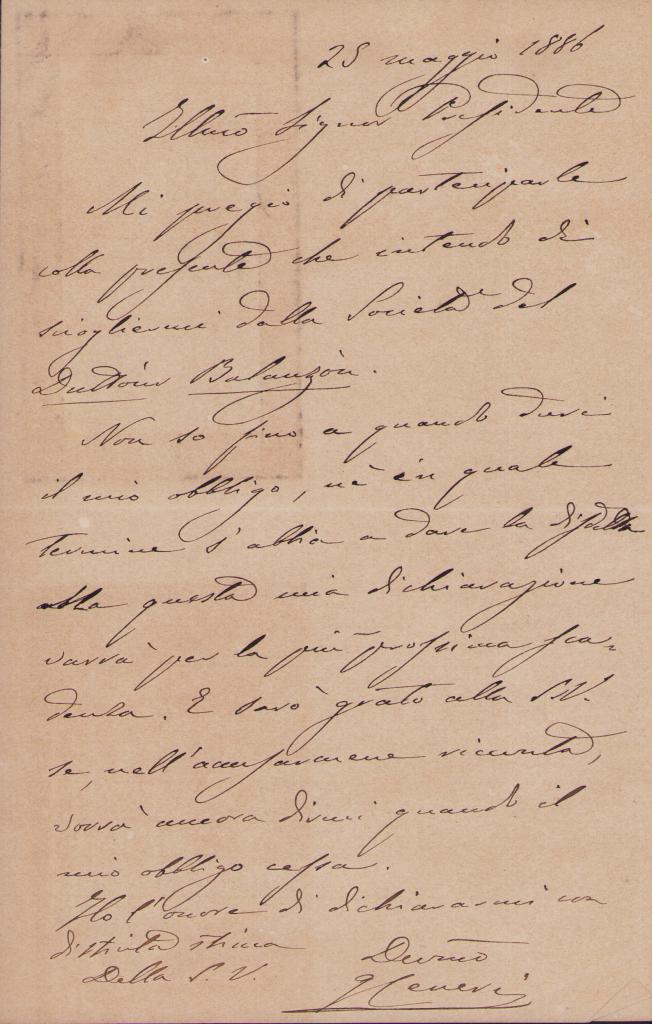 25 maggio 1886
Illmo Signor Presidente
Mi pregio di parteciparle
colla presente che intendo di
sciogliermi dalla Società del
Duttòur Balanzòn.
Non so fino a quando duri
il mio obbligo, nè in quale
termine s'abbia a dare la disdetta
Ma questa mia dichiarazione
varrà per la più prossima sca-
denza. E sarò grato alla S.V.
se, nell'accusarmene ricevuta,
vorrà ancora dirmi quando il
mio obbligo cessa.
Ho l'onore di dichiararmi con
distinta stima
Della S. V.
Devmo
GCeneri